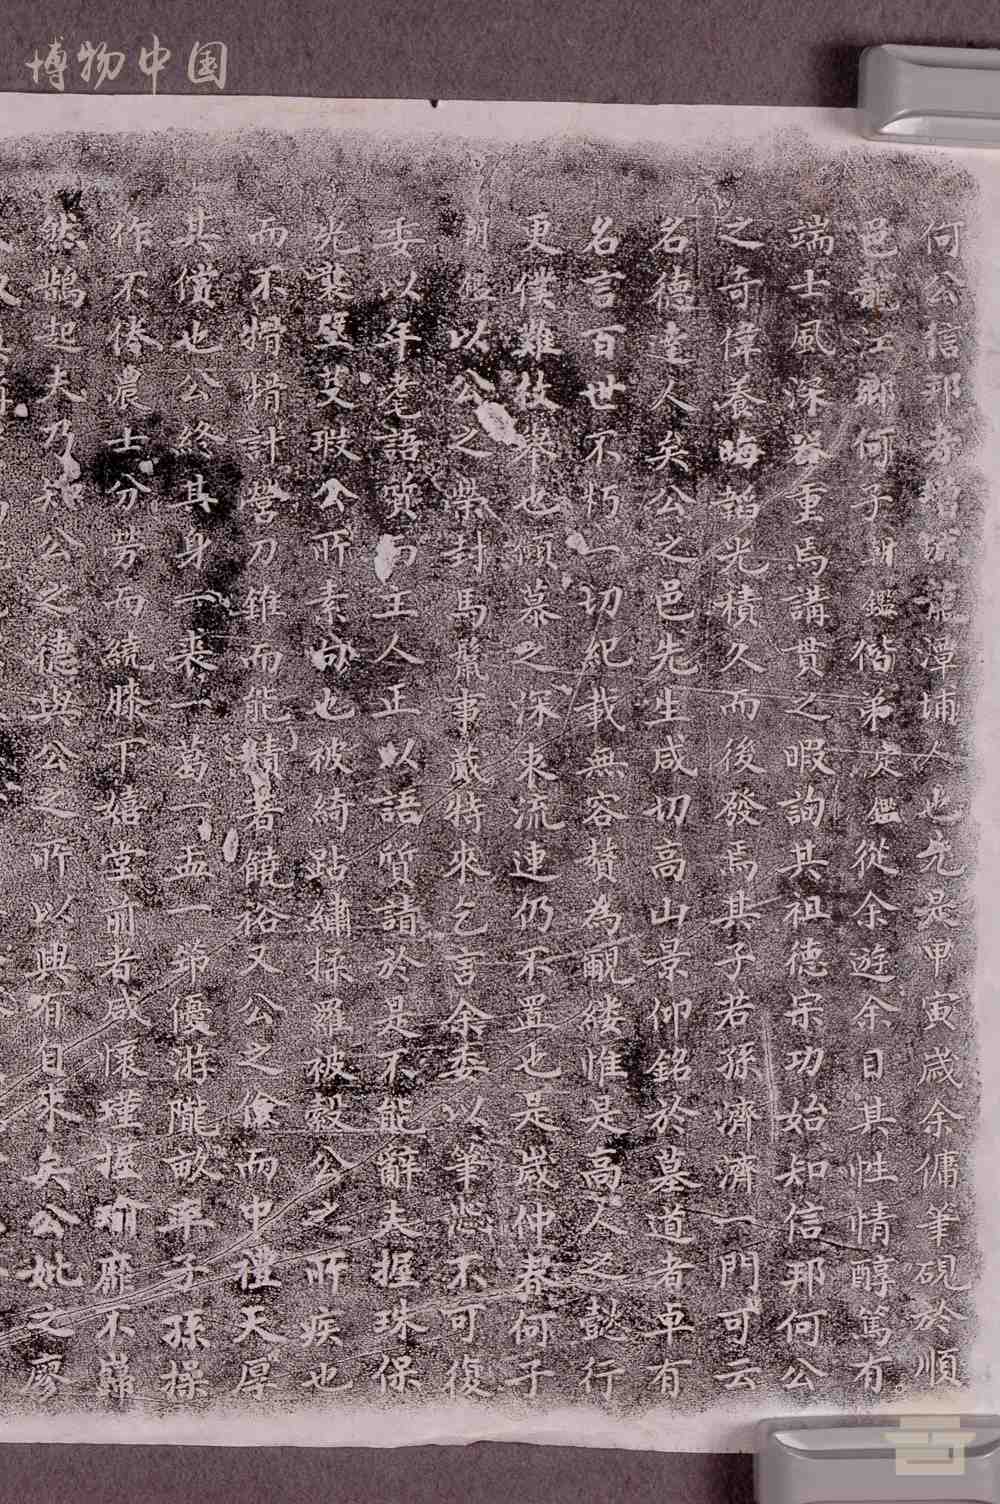 博物中国
何公信那者增城龍潭埔人也先是甲寅歲余傭筆硯於順
邑龍江鄉何子鑑偕弟定鑑從余遊余日其性情醇篤有
端士風深器重焉講貫之暇詢其祖德宗功始知信那何公
之奇偉養晦韜光積久而後發焉其子若孫濟濟一門可云
名德達人矣公之邑先生咸切高山景仰銘於墓道者卓有
名言百世不朽一切紀載無容贅為覼縷惟是高人之懿行
更僕難枚舉也傾慕之深東流連仍不置也是歲仲春何子
以公之榮封馬鬣事蕆特來乞言余委以筆不可復
委以年耄語質而王人正以語質請於是不能辭夫握珠保
光裘璧艾瑕公所素也被綺跕繡採羅被縠公之所疾也
而不搰搰計營刀錐而能精著饒裕又公之儉而中禮天厚
其償也公終其身一裘一葛一盂一笫優游隴畝率子孫操
作不倦農士分勞而繞膝下嬉堂前者咸懷瑾握瑜靡不歸
然鵲起夫乃知公之德與公之所以興有自來矣公妣之廖